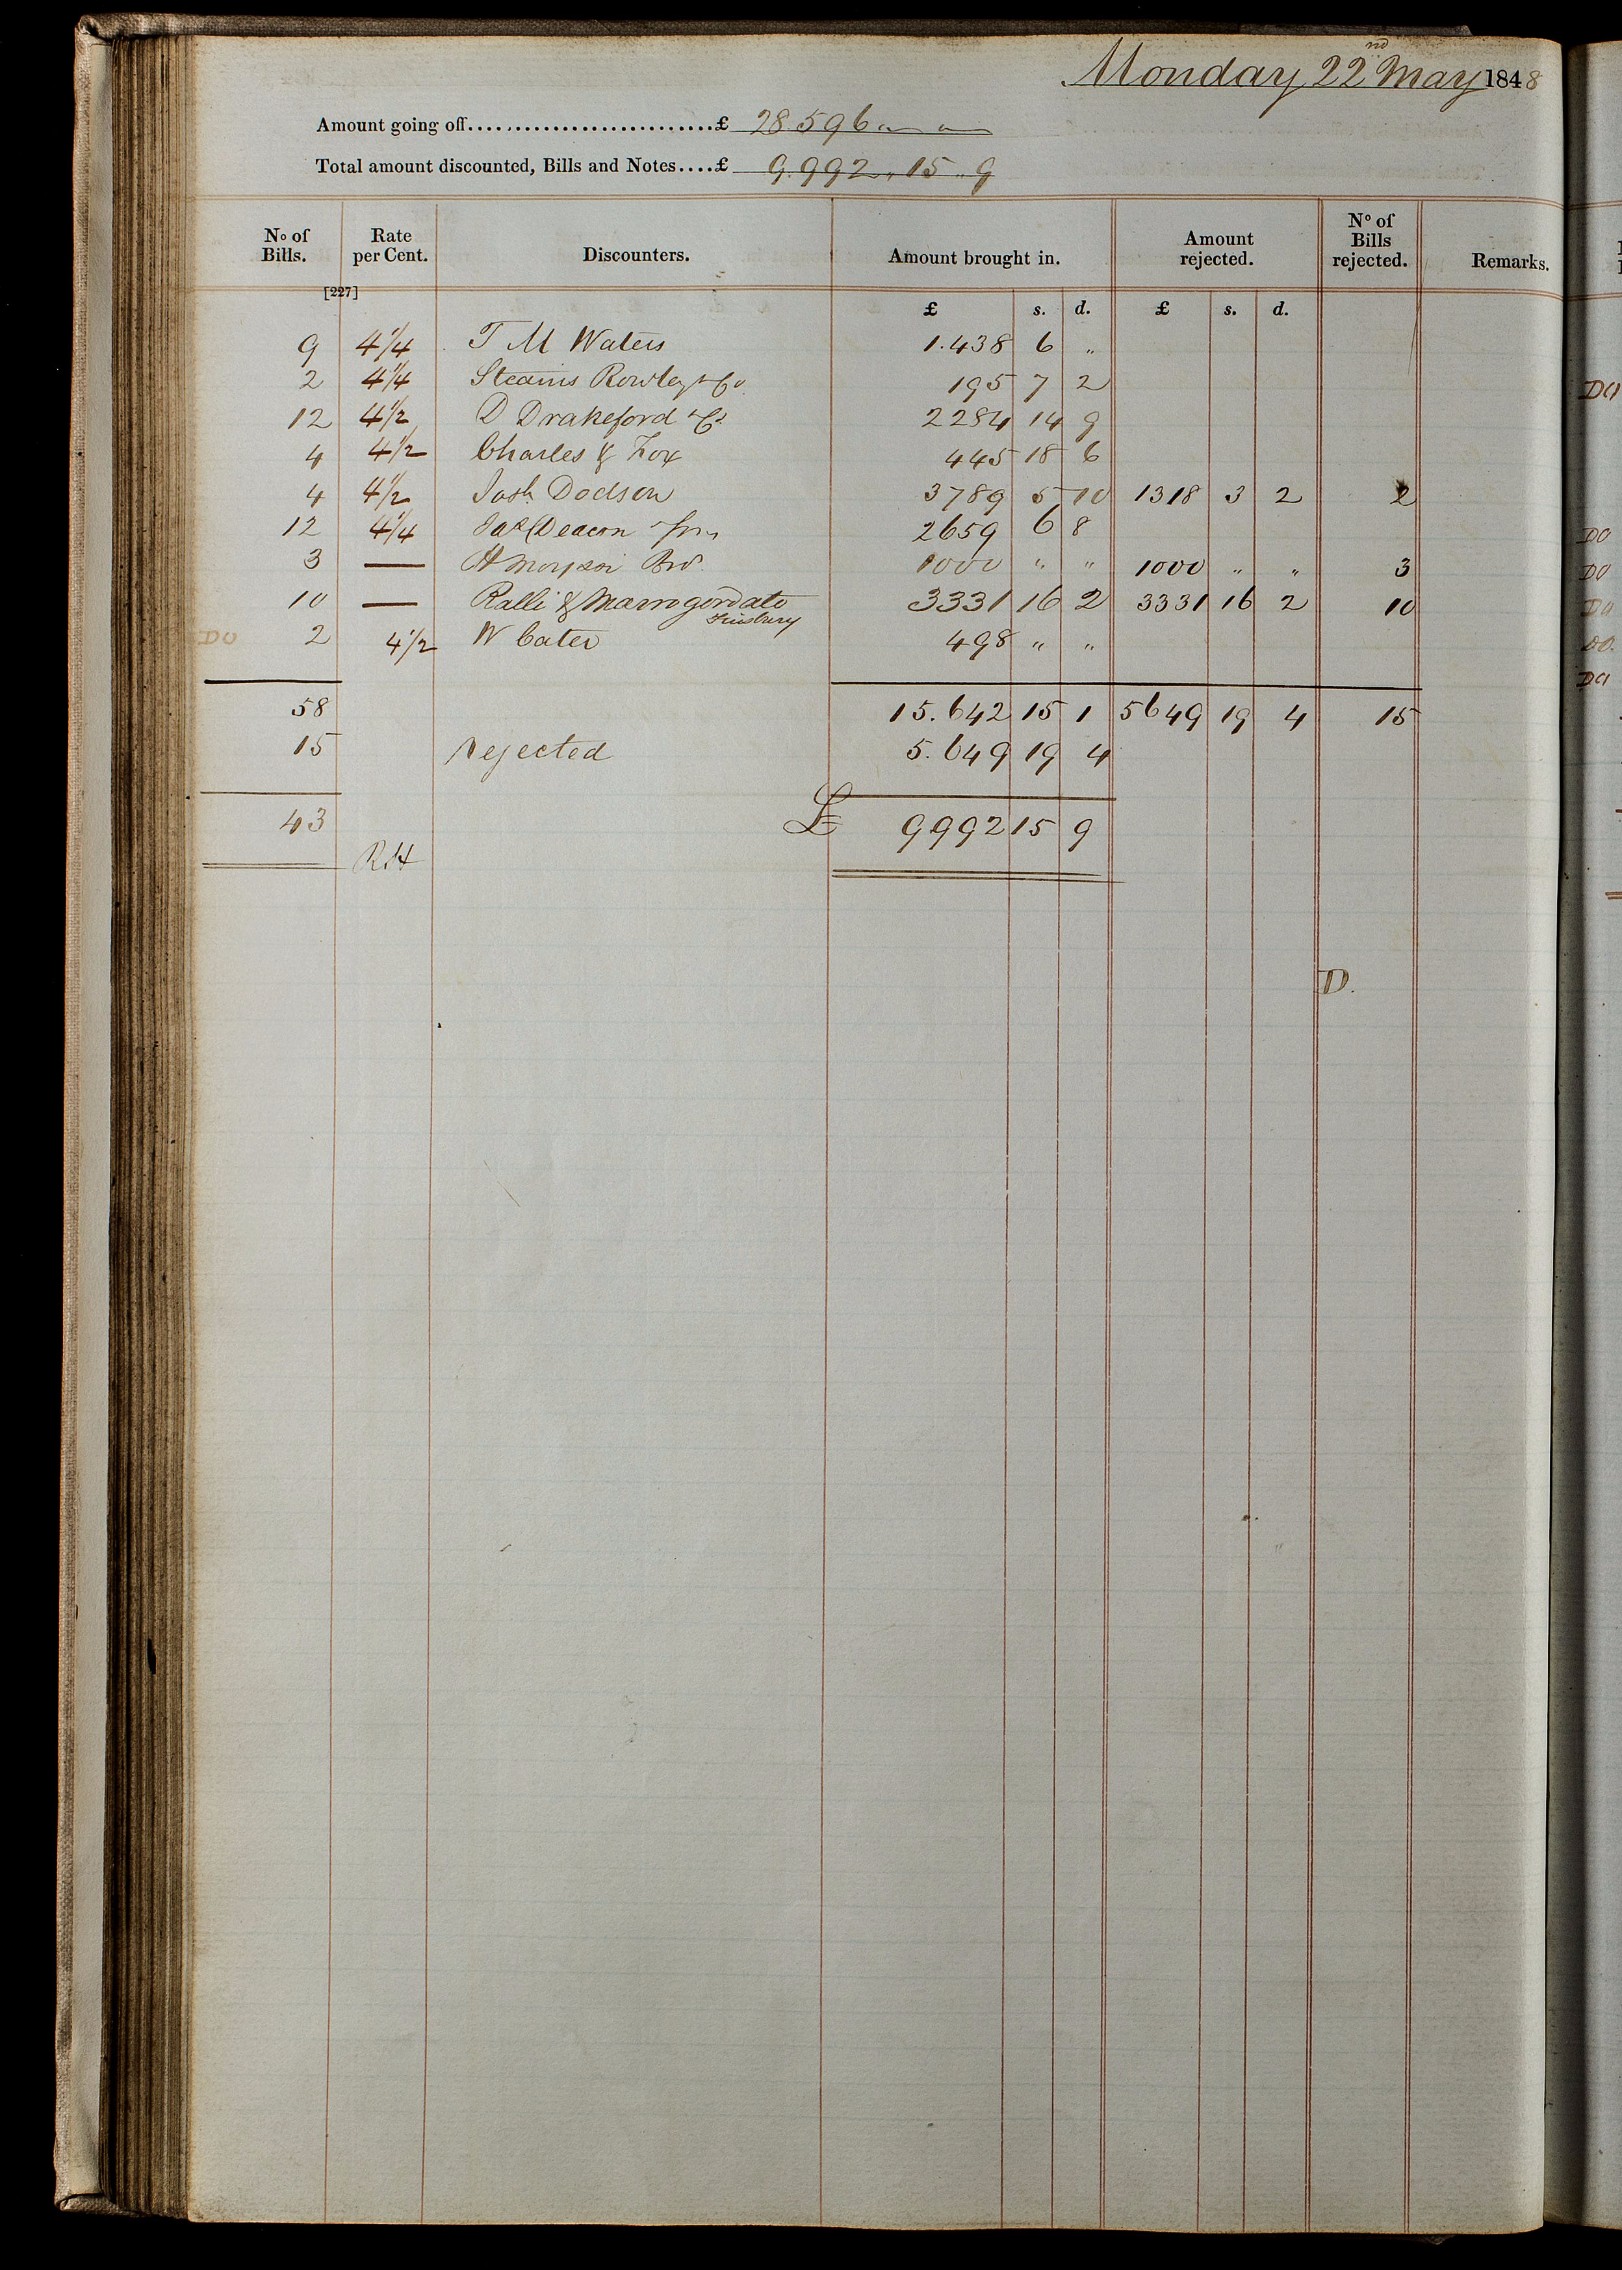 Monday 22nd May 1848
Amount going off..........................£ 28596 " "
Total amount discounted, Bills and Notes....£ 9.992 " 15 " 9
No of Bills. Rate per Cent. Discounters. Amount brought in. Amount rejected. No of Bills rejected. Remarks.
[227]
£ s. d. £ s. d.
9 4 1/4 T M Waters 1.438 6 "
2 4 1/4 Stearns Rowley & Co 195 7 2
12 4 1/2 D Drakeford & Co 2284 14 9
4 4 1/2 Charles & Fox 445 18 6
4 4 1/2 Josh Dodson 3789 5 10 1318 3 2 2
12 4 1/4 Jas Deacon & Sons 2659 6 8
3 — H 1000 " " 1000 " " 3
10 — Ralli & Mavrogordato 3331 16 2 3331 16 2 10
Finsbury
Do 2 4 1/2 W Cater 498 " "
58 15.642 15 1 5649 19 4 15
15 rejected 5.649 19 4
43 £ 9992 15 9
D.